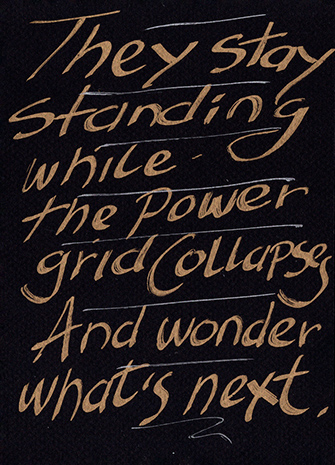 They stay
standing
while -
the Power
grid Collapses
And wonder
what's next.